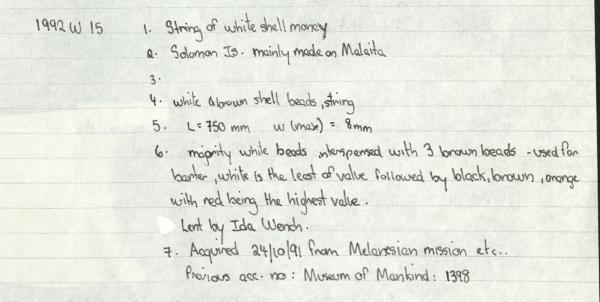 1992 W 15 1. String of white shell money
2. Solomon Is. mainly made on Malaita
3.
4. white & brown shell beads, string
5. L = 750 mm w (max) = 8mm
6. majority white beads interspersed with 3 brown beads - used for
barter, white is the least of value followed by black, brown, orange
with red being the highest value.
Lent by Ida Wench.
7. Acquired 24/10/91 from Melanesian mission etc..
Previous acc. no: Museum of Mankind: 1398